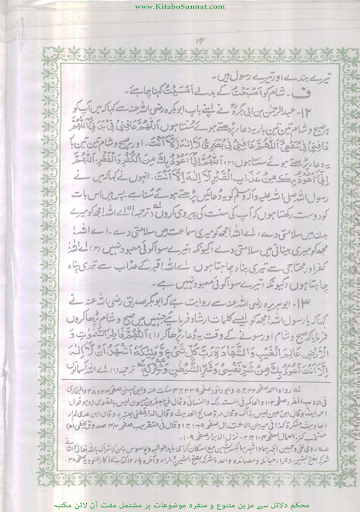 www.KitaboSunnat.com
۱۴
تیرے بندے اور تیرے رسول ہیں۔
ف۔ شام کو اَصْبَحْتُ کے بدلے اَمْسَيْتُ کہنا چاہیے۔
۱۲۔ عبدالرحمٰن بن ابی بکرہؓ نے اپنے باپ ابوبکرہ رضی اللہ عنہ سے کہا کہ میں آپ کو
ہر صبح و شام تین تین بار یہ دعا پڑھتے ہوئے سنتا ہوں اَللّٰهُمَّ عَافِنِيْ فِيْ بَدَنِيْ اَللّٰهُمَّ
عَافِنِيْ فِيْ سَمْعِيْ اَللّٰهُمَّ عَافِنِيْ فِيْ بَصَرِيْ لَا اِلٰهَ اِلَّا اَنْتَ۔ اور صبح و شام تین تین بار
یہ دعا پڑھتے ہوئے سنتا ہوں (۲) اَللّٰهُمَّ اِنِّيْ اَعُوْذُ بِكَ مِنَ الْكُفْرِ وَالْفَقْرِ اَللّٰهُمَّ
اِنِّيْ اَعُوْذُ بِكَ مِنْ عَذَابِ الْقَبْرِ لَا اِلٰهَ اِلَّا اَنْتَ۔ انہوں نے کہا کہ میں نے
رسول اللہ صلی اللہ علیہ وآلہ وسلم کو یہ دعائیں پڑھتے ہوئے سنا ہے۔ پس میں اس بات
کو دوست رکھتا ہوں کہ آپ کی سنت کی پیروی کروں (ترجمہ) اے اللہ! مجھ کو میرے
بدن میں سلامتی دے، اے اللہ! مجھ کو میری سماعت میں سلامتی دے۔ اے اللہ!
مجھ کو میری بینائی میں سلامتی دے کیونکہ تیرے سوا کوئی معبود نہیں (۲) اے اللہ!
کفر اور محتاجی سے تیری پناہ چاہتا ہوں اے اللہ! قبر کے عذاب سے تیری پناہ
چاہتا ہوں کیونکہ تیرے سوا کوئی معبود نہیں ہے۔
۱۳۔ ابوہریرہ رضی اللہ عنہ سے روایت ہے کہ ابوبکر صدیق رضی اللہ عنہ نے
کہا کہ یا رسول اللہ! مجھ کو ایسے کلمات ارشاد فرمائیے جنہیں میں صبح و شام پڑھا کروں
فرمایا کہ صبح و شام اور سونے کے وقت یہ دعا پڑھا کر (۱) اَللّٰهُمَّ فَاطِرَ السَّمٰوٰتِ وَ
الْاَرْضِ عَالِمَ الْغَيْبِ وَالشَّهَادَةِ رَبَّ كُلِّ شَيْءٍ وَمَلِيْكَهٗ اَشْهَدُ اَنْ لَّا اِلٰهَ
اِلَّا اَنْتَ اَعُوْذُ بِكَ مِنْ شَرِّ نَفْسِيْ وَشَرِّ الشَّيْطٰنِ وَشِرْكِهٖ (ترجمہ) اے اللہ! آسمانوں
محکم دلائل سے مزین متنوع و منفرد موضوعات پر مشتمل مفت آن لائن مکتبہ